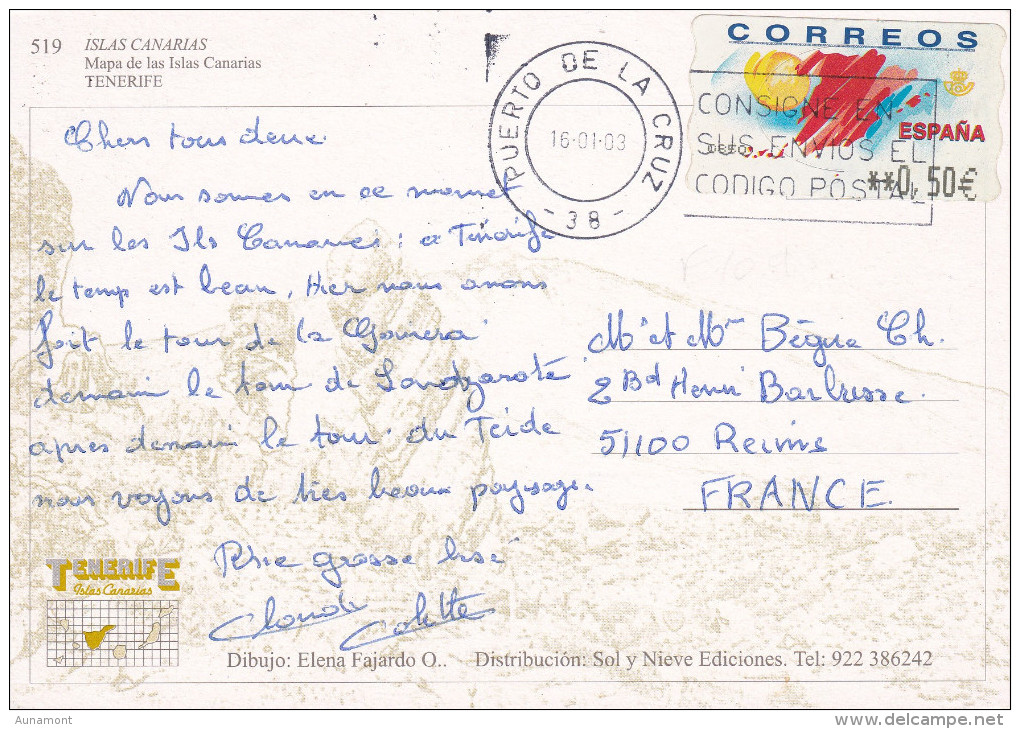 519 ISLAS CANARIAS
Mapa de las Islas Canarias
TENERIFE
CORREOS
ESPAÑA
**0,50€
PUERTO DE LA CRUZ
16·01·03
- 38 -
CONSIGNE EN
SUS ENVIOS EL
CODIGO POSTAL
Chers tous deux
Nous sommes en ce moment
sur les Ils Canaries : a Ténérife
le temp est beau, Hier nous avons
fait le tour de la Gomera
demain le tour de Landzarote
apres demain le tour du Teide
nous voyons de très beaux paysages
grosse bise
Claude
Colette
Mr et Mme Bègue Ch.
2 Bd Henri Barbusse.
51100 Reims
FRANCE
TENERIFE
Islas Canarias
Dibujo: Elena Fajardo O.. Distribución: Sol y Nieve Ediciones. Tel: 922 386242
Aunamont
www.delcampe.net